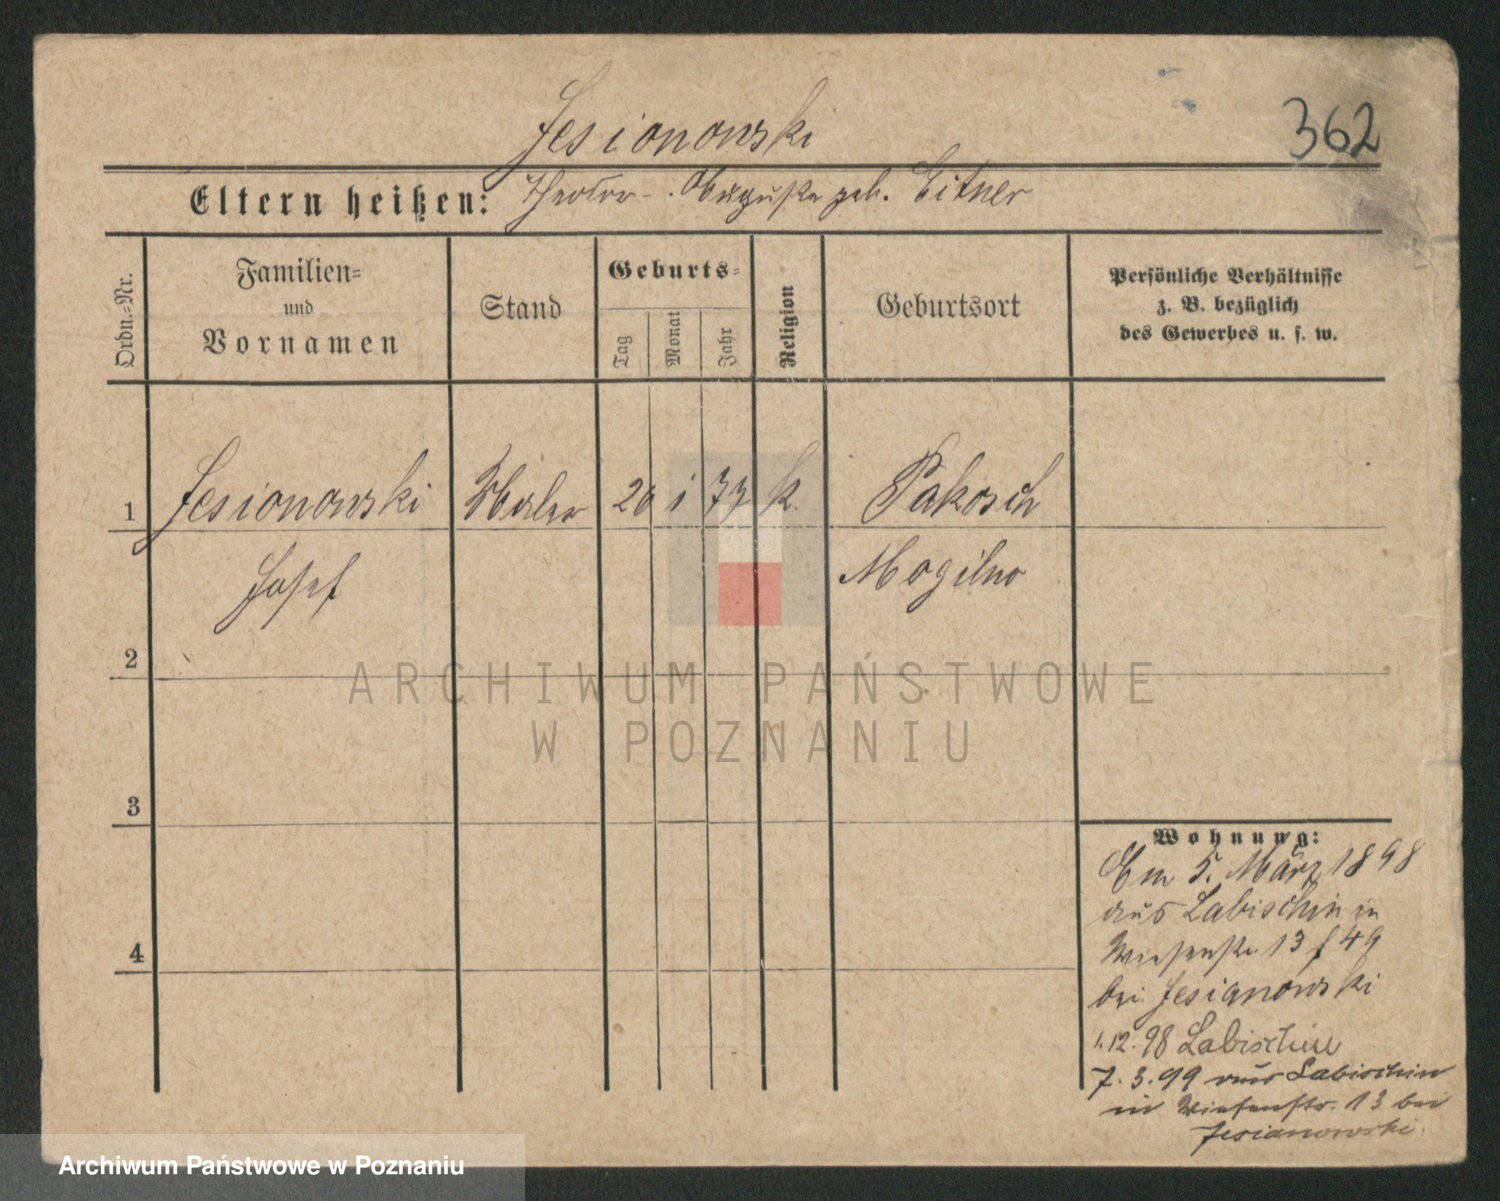 Jesionowski
362
Eltern heißen: Theodor - Auguste geb. Eitner
Ordn.-Nr.
Familien-
und
Vornamen
Stand
Geburts-
Tag
Monat
Jahr
Religion
Geburtsort
Persönliche Verhältnisse
z. B. bezüglich
des Gewerbes u. s. w.
1 Jesionowski Maler 26 1 77 k. Pakosch
Josef Mogilno
2
3
4
Wohnung:
Am 5. März 1898
aus Labischin in
Wiesenstr. 13 f 49
bei Jesionowski
1.12.98 Labischin
7.3.99 aus Labischin
in Wiesenstr. 13 bei
Jesionowski.
ARCHIWUM PAŃSTWOWE
W POZNANIU
Archiwum Państwowe w Poznaniu